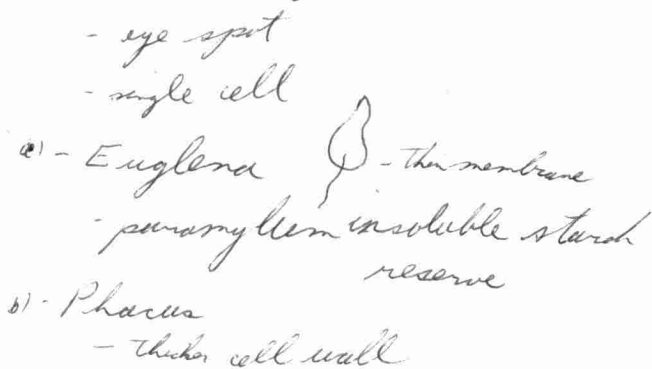 - eye spot
- single cell
a) - Euglena - thin membrane
- paramylum insoluble starch
reserve
b) - Phacus
- thicker cell wall